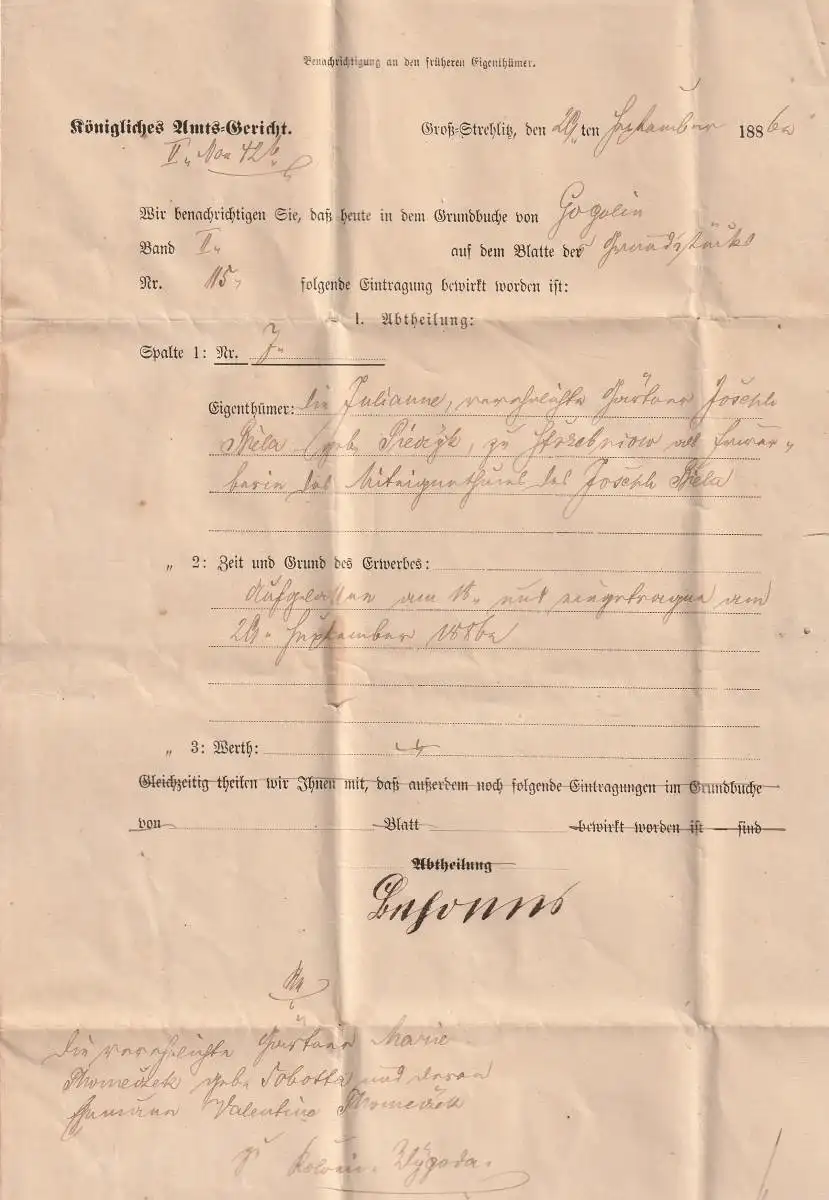 Benachrichtigung an den früheren Eigenthümer.
Königliches Amts-Gericht.
Groß-Strehlitz, den 29ten September 1886
II.
Wir benachrichtigen Sie, daß heute in dem Grundbuche von Gogolin
Band II. auf dem Blatte des Grundstücks
Nr. 115. folgende Eintragung bewirkt worden ist:
I. Abtheilung:
Spalte 1: Nr. 7.
Eigenthümer: die Julianne, verehelichte Gärtner Joseph
Biela geb. zu als Erwer-
berin des Miteigenthums des Joseph Biela
„ 2: Zeit und Grund des Erwerbes:
Aufgelassen am 18. und eingetragen am
29. September 1886
„ 3: Werth:
Gleichzeitig theilen wir Ihnen mit, daß außerdem noch folgende Eintragungen im Grundbuche
von Blatt bewirkt worden ist – sind
Abtheilung
An
die verehelichte Gärtner Marie
Thomeczek geb. Sobotta und deren
Ehemann Valentin Thomeczek
zu Kolonie Wygoda.